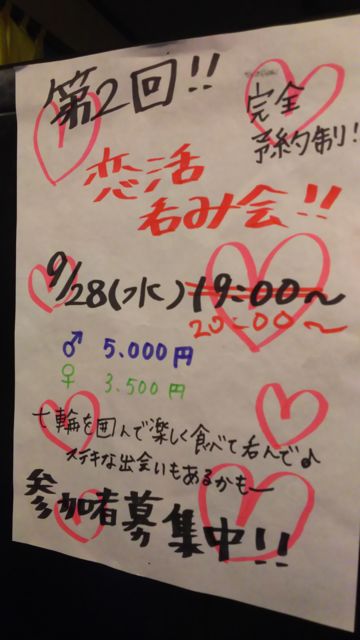 第2回!!
完全
予約制!
恋活
呑み会!!
9/28(水) 19:00〜
20:00〜
♂ 5.000円
♀ 3.500円
七輪を囲んで楽しく食べて呑んで♪
ステキな出会いもあるかもー
参加者募集中!!